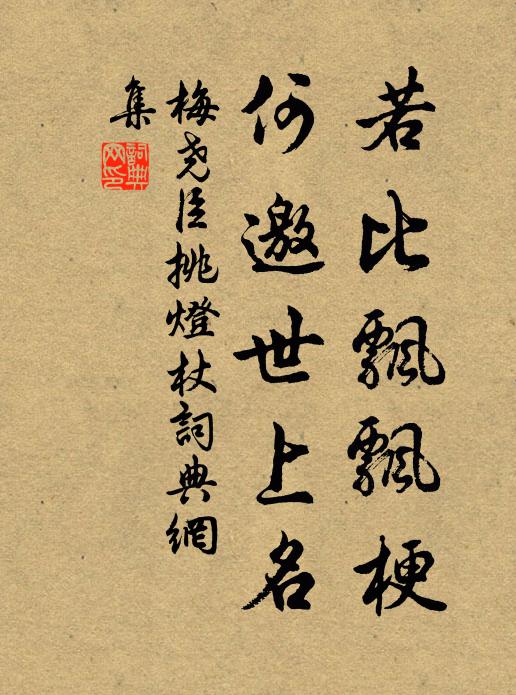 若比飄飄梗
何邀世上名
梅尧臣挑燈杖詞典網
集
詞典網印